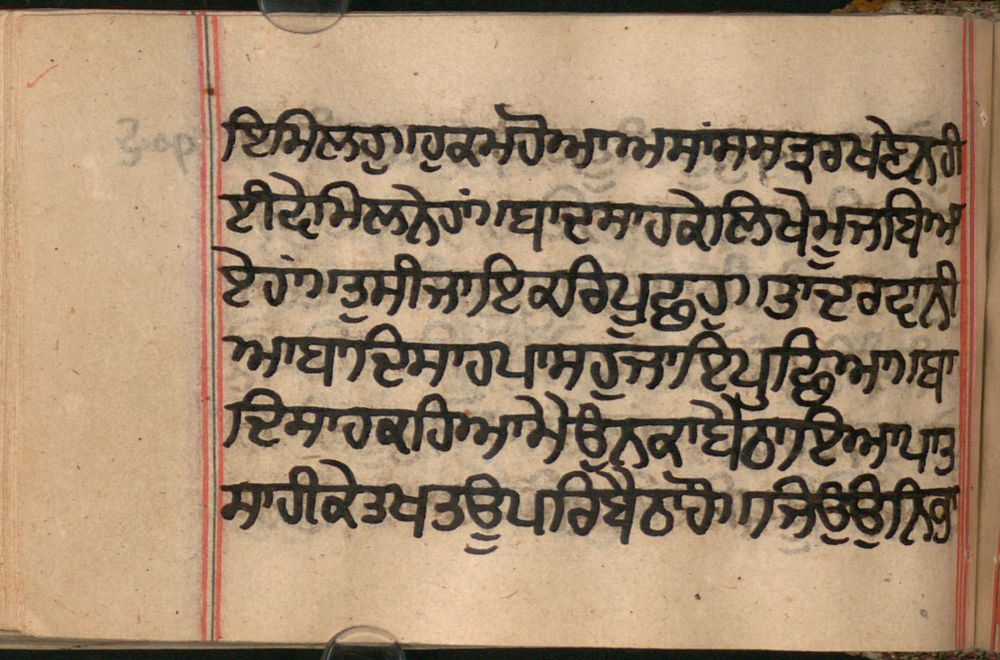 ਇਮਿਲਹੁ।ਹੁਕਮਹੋਆ।ਅਸਾਂਸਸਤ੍ਰਰਖਣੇਨਹੀ
ਈਦੇਮਿਲਨੇਹਾਂ।ਬਾਦਸਾਹਕੇਲਿਖੇਮੂਜਬਿਆ
ਏਹਾਂ।ਤੁਸੀਜਾਇਕਰਿਪੂਛਹੁ।ਤਾਦਰਵਾਨੀ
ਆਬਾਦਿਸਾਹਪਾਸਹੁਜਾਇਪੁਛਿਆ।ਬਾ
ਦਿਸਾਹਕਹਿਆਮੈਉਨਕਾਬੈਠਾਇਆਪਾਤ
ਸਾਹੀਕੇਤਖਤਉਪਰਿਬੈਠਾਹੋ।।ਜਿਉਉਨਿਭਾ